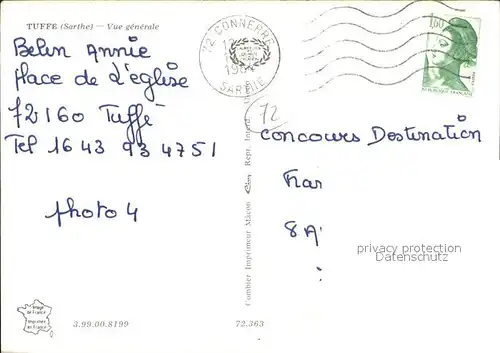 TUFFE (Sarthe) — Vue générale
Belin Annie
Place de L'eglise
72160 Tuffé
Tel 16 43 93 4751
photo 4
72 CONNERRE
SARTHE
1,60
REPUBLIQUE FRANÇAISE
72
Concours Destination
8A
privacy protection
Datenschutz
Combier Imprimeur Mâcon Cim
Image de France
Imprimée en France
3.99.00.8199
72.363